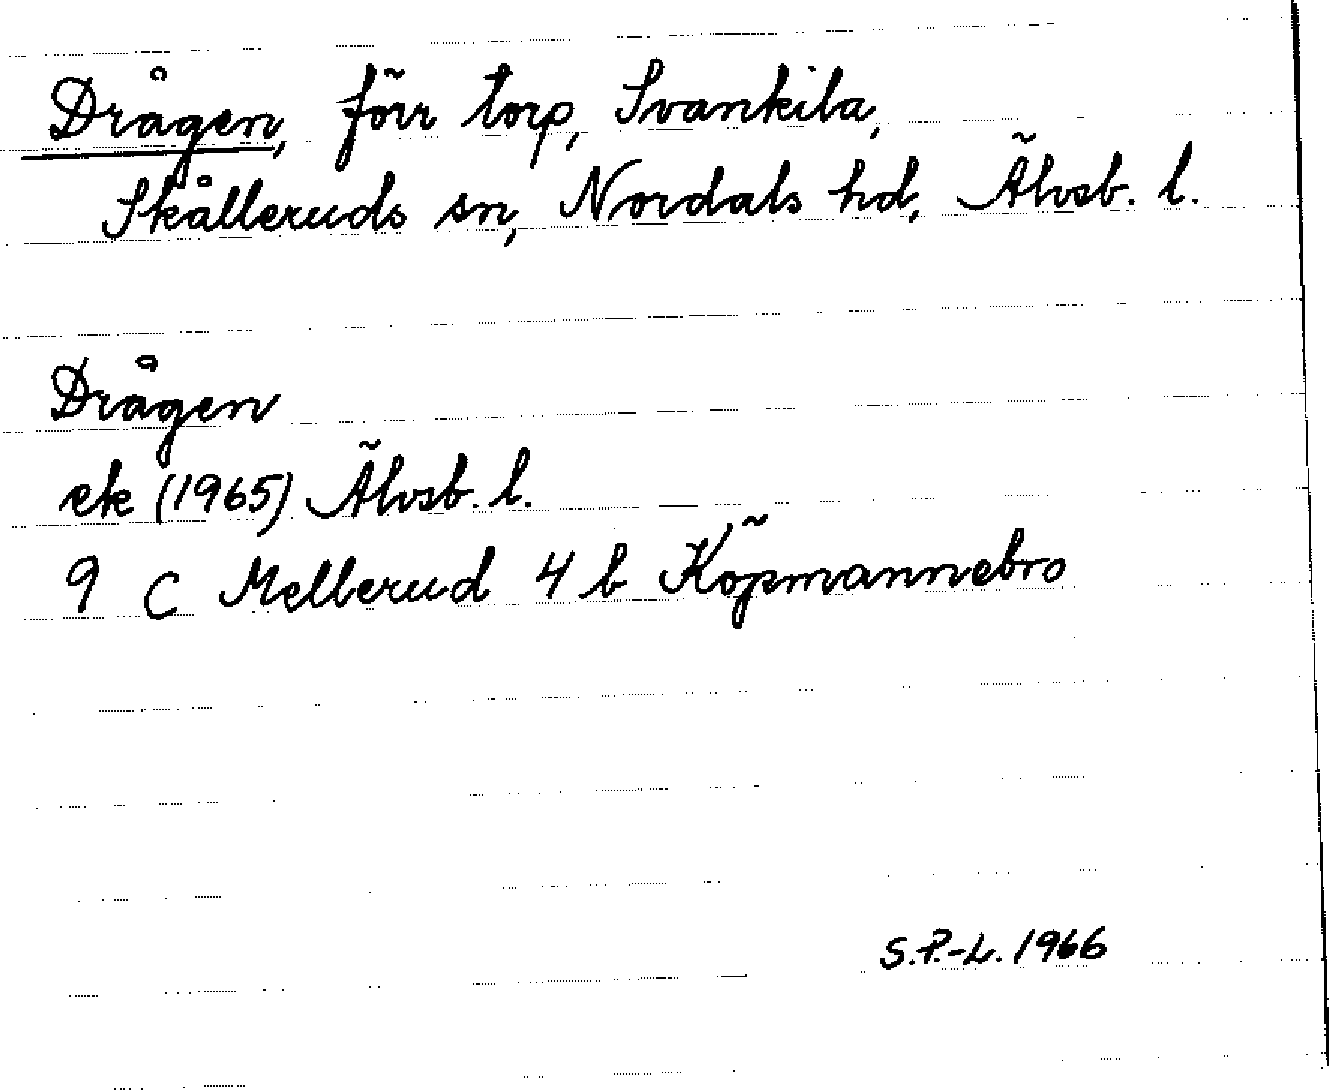 Drågen, förr torp, Svankila,
Skålleruds sn, Nordals hd, Älvsb. l.
Drågen
ek (1965) Älvsb. l.
9 C Mellerud 4 b Köpmannebro
S.P.-L. 1966